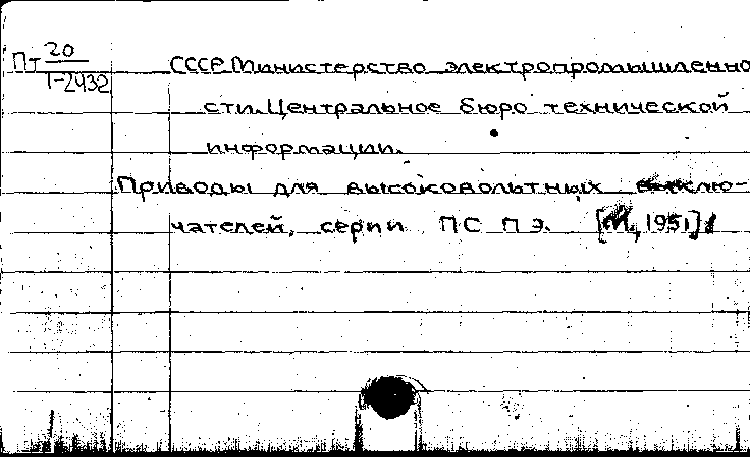 Пт 20
1-2432
СССР. Министерство электропромышленно
сти. Центральное бюро технической
информации.
Приводы для высоковольтных выклю-
чателей, серии ПС ПЭ. [М., 1951]